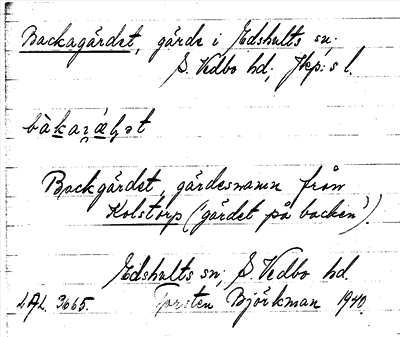 Backagärdet, gärde i Edshults sn.
S. Vedbo hd; Jkp:s l.
Backgärdet, gärdesnamn från
Kolstorp ('gärdet på backen').
Edshults sn; S. Vedbo hd.
LAL. 3665. Torsten Björkman 1940.